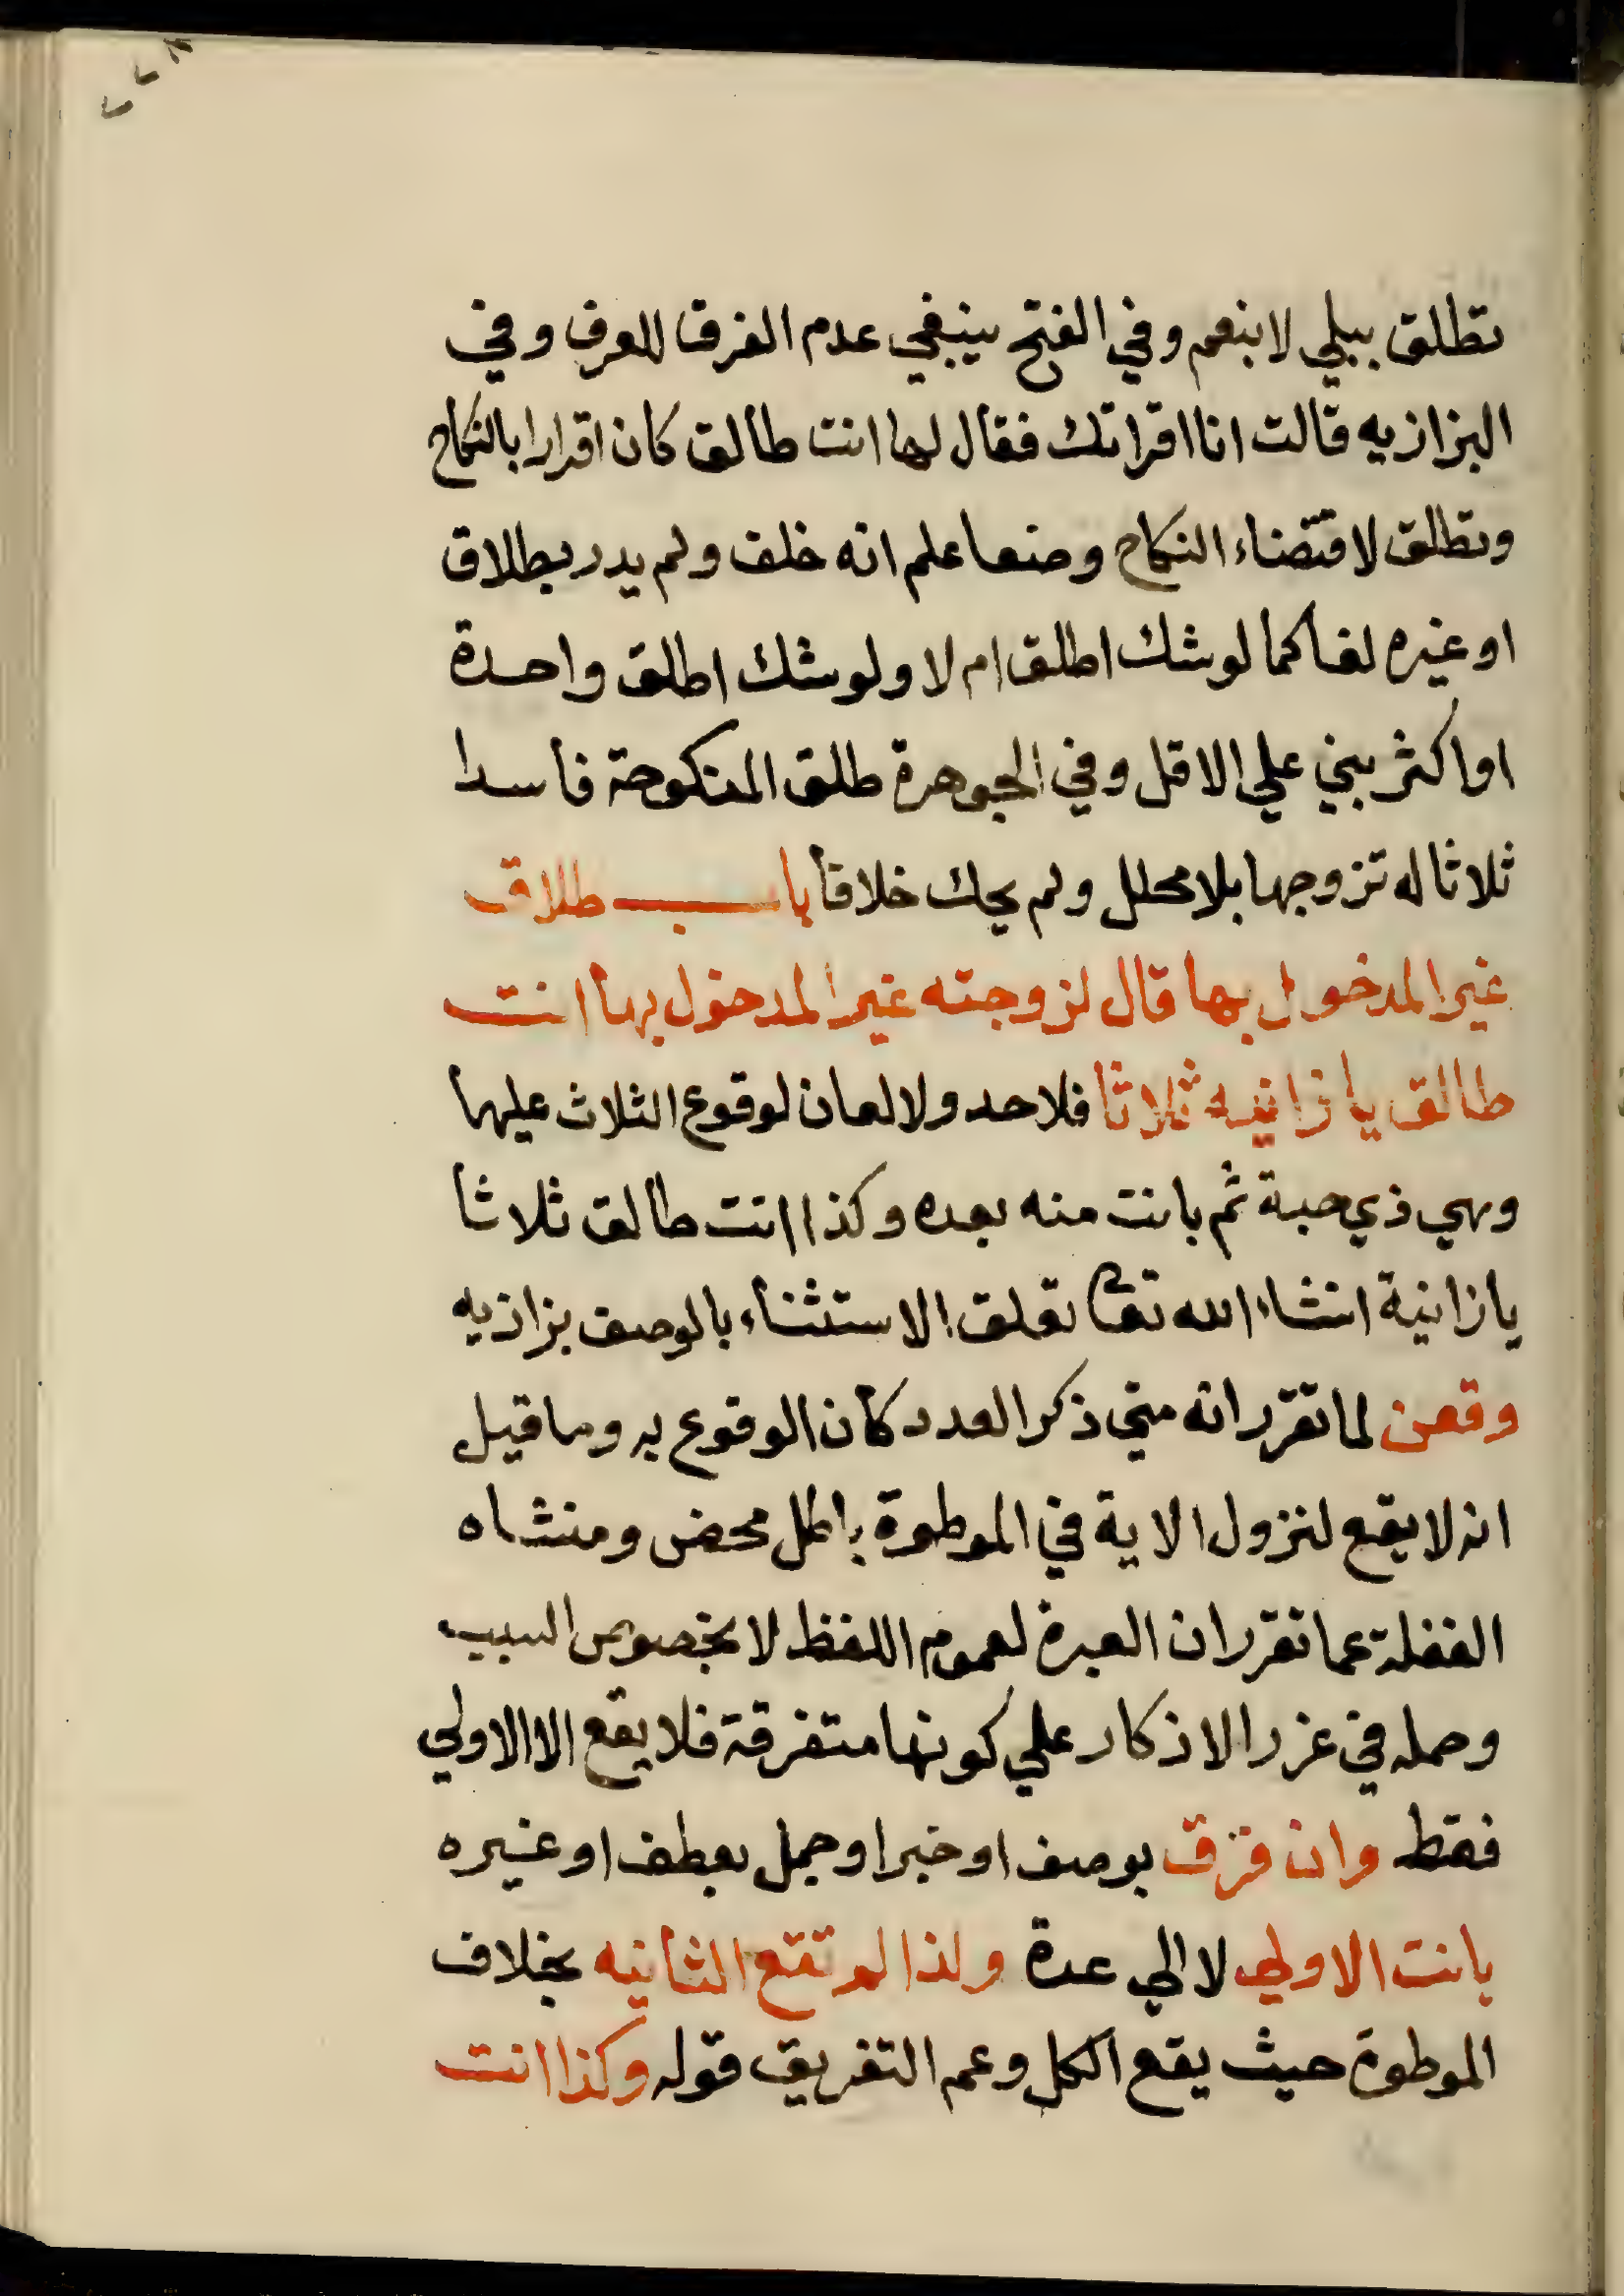 تطلق ببلي لا بنعم وفي الفتح ينبغي عدم الفرق للعرف وفي
البزازيه قالت انا اقراتك فقال لها انت طالق كان اقرارا بالنكاح
وتطلق لاقتضاء النكاح وضعا علم انه خلف ولم يدر بطلاق
او غيره لغا كما لو شك اطلق ام لا ولو شك اطلق واحدة
او اكثر بني علي الاقل وفي الجوهرة طلق المنكوحة فاسدا
ثلاثا له تزوجها بلا محلل ولم يحك خلافا باب طلاق
غير المدخول بها قال لزوجته غير المدخول بها انت
طالق يا زانيه ثلاثا فلا حد ولا لعان لوقوع الثلاث عليها
وهي ذي حبة ثم بانت منه بعده وكذا انت طالق ثلاثا
يا زانية انشاء الله تعا تعلق الاستثناء بالوصف بزازيه
وقعن لما تقرر انه متي ذكر العدد كان الوقوع به وما قيل
انه لا يقع لنزول الاية في الموطوة باطل محض ومنشاه
الغفلة عما تقرر ان العبرة لعموم اللفظ لا بخصوص السبب
وحمله في غرر الاذكار علي كونها متفرقة فلا يقع الا الاولي
فقط وان فرق بوصف او خبر او جمل بعطف او غيره
بانت الاولي لا الي عدة ولذا لم تقع الثانيه بخلاف
الموطوة حيث يقع الكل وعم التفريق قوله وكذا انت